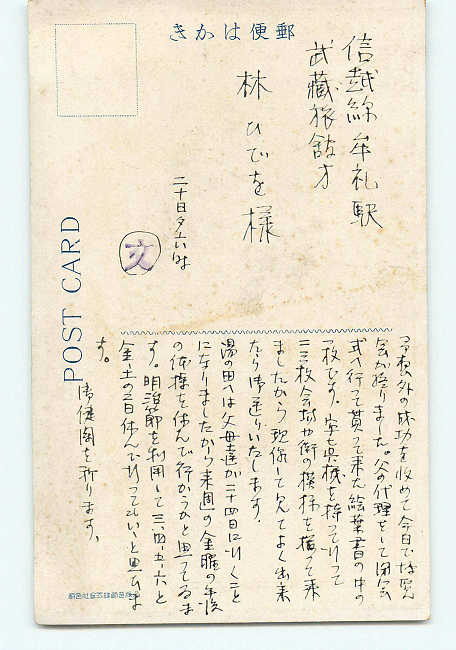 郵便はかき
信越線牟礼駅
武藏旅館方
林ひでを様
二十日夕
文
POST CARD
予想外の成功を收めて今日で
会が終りました。父の代理をして閉会
式へ行って貰って来た絵葉書の中の
一枚です。写真機を持って行って
二三枚会場や街の模様を撮って来
ましたから現像して見てよく出来
たら御送りいたします。
湯の田へは父母達が二十四日に行くこと
になりましたから来週の金曜の午後
の体操を休んで行かうかと思ってゐま
す。明治節を利用して三、四、五、六と
金、土の二日休んで行ってもいいと思ひま
す。
御健闘を祈ります。